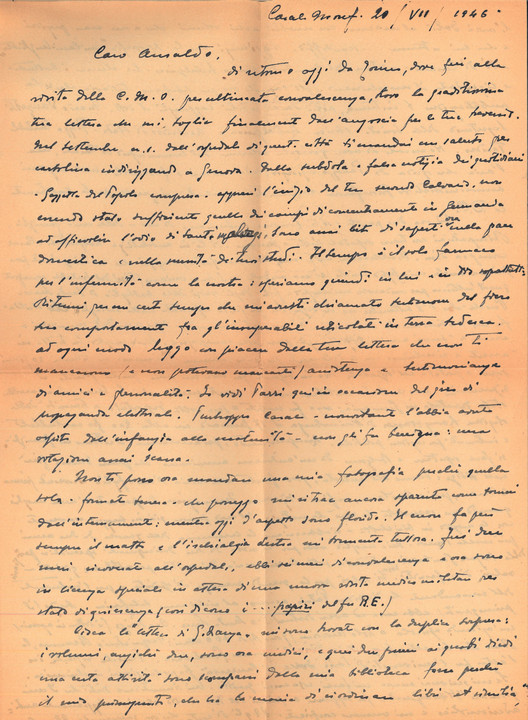 Casal Monf. 20/VII/1946
Caro Ansaldo,
di ritorno oggi da Torino, dove fui alla
visita della C.M.O. per ultimata convalescenza, trovo la graditissima
tua lettera che mi toglie finalmente dall'angoscia per le tue
Nel settembre u.s. dall'ospedale di quest. città ti mandai un saluto per
cartolina indirizzando a Genova. Dalla subdola e falsa notizia dei quotidiani
- Gazzetta del Popolo compresa - appresi l'inizio del tuo secondo Calvario, non
essendo stato sufficiente quello dei campi di concentramento in Germania
ad affievolire l'odio di tanti malvagi. Sono anzi lieto di saperti ora nella pace
domestica e nella serenità dei tuoi studi. Il tempo è il solo farmaco
per l'infermità come la nostra: speriamo quindi in lui e in DIO soprattutto.
Ritenni per un certo tempo che mi avresti chiamato testimone del fiero
tuo comportamento fra gl'inseparabili reticolati in terra tedesca.
Ad ogni modo leggo con piacere dalla tua lettera che non ti
mancarono (e non potevano mancarti) assistenza e testimonianza
di amici e generalità. Io vidi Parri qui in occasione del giro di
propaganda elettorale. Purtroppo Casale - nonostante l'abbia avuto
ospite dall'infanzia alla maturità - non gli fu benigna: una
votazione assai scarsa.
Non ti posso ora mandare una mia fotografia perché quella
sola - formato tessera - che posseggo mi ritrae ancora sparuto come tornai
dall'internamento: mentre oggi d'aspetto sono florido. Il cuore fa però
sempre il matto e l'ischialgia destra mi tormenta tuttora. Fui due
mesi ricoverato all'ospedale, ebbi sei mesi di convalescenza e ora sono
in licenza speciale in attesa di una nuova visita medico militare per
stato di quiescenza (così dicono i .... papiri del fu R.E.)
Circa la lettera di G. mi sono trovato con la duplice sorpresa:
i volumi, anziché due, sono ora undici, e quei due primi ai quali diedi
una certa attività sono scomparsi dalla mia biblioteca forse perché
il mio primogenito, che ha la mania di riordinare libri et similia,